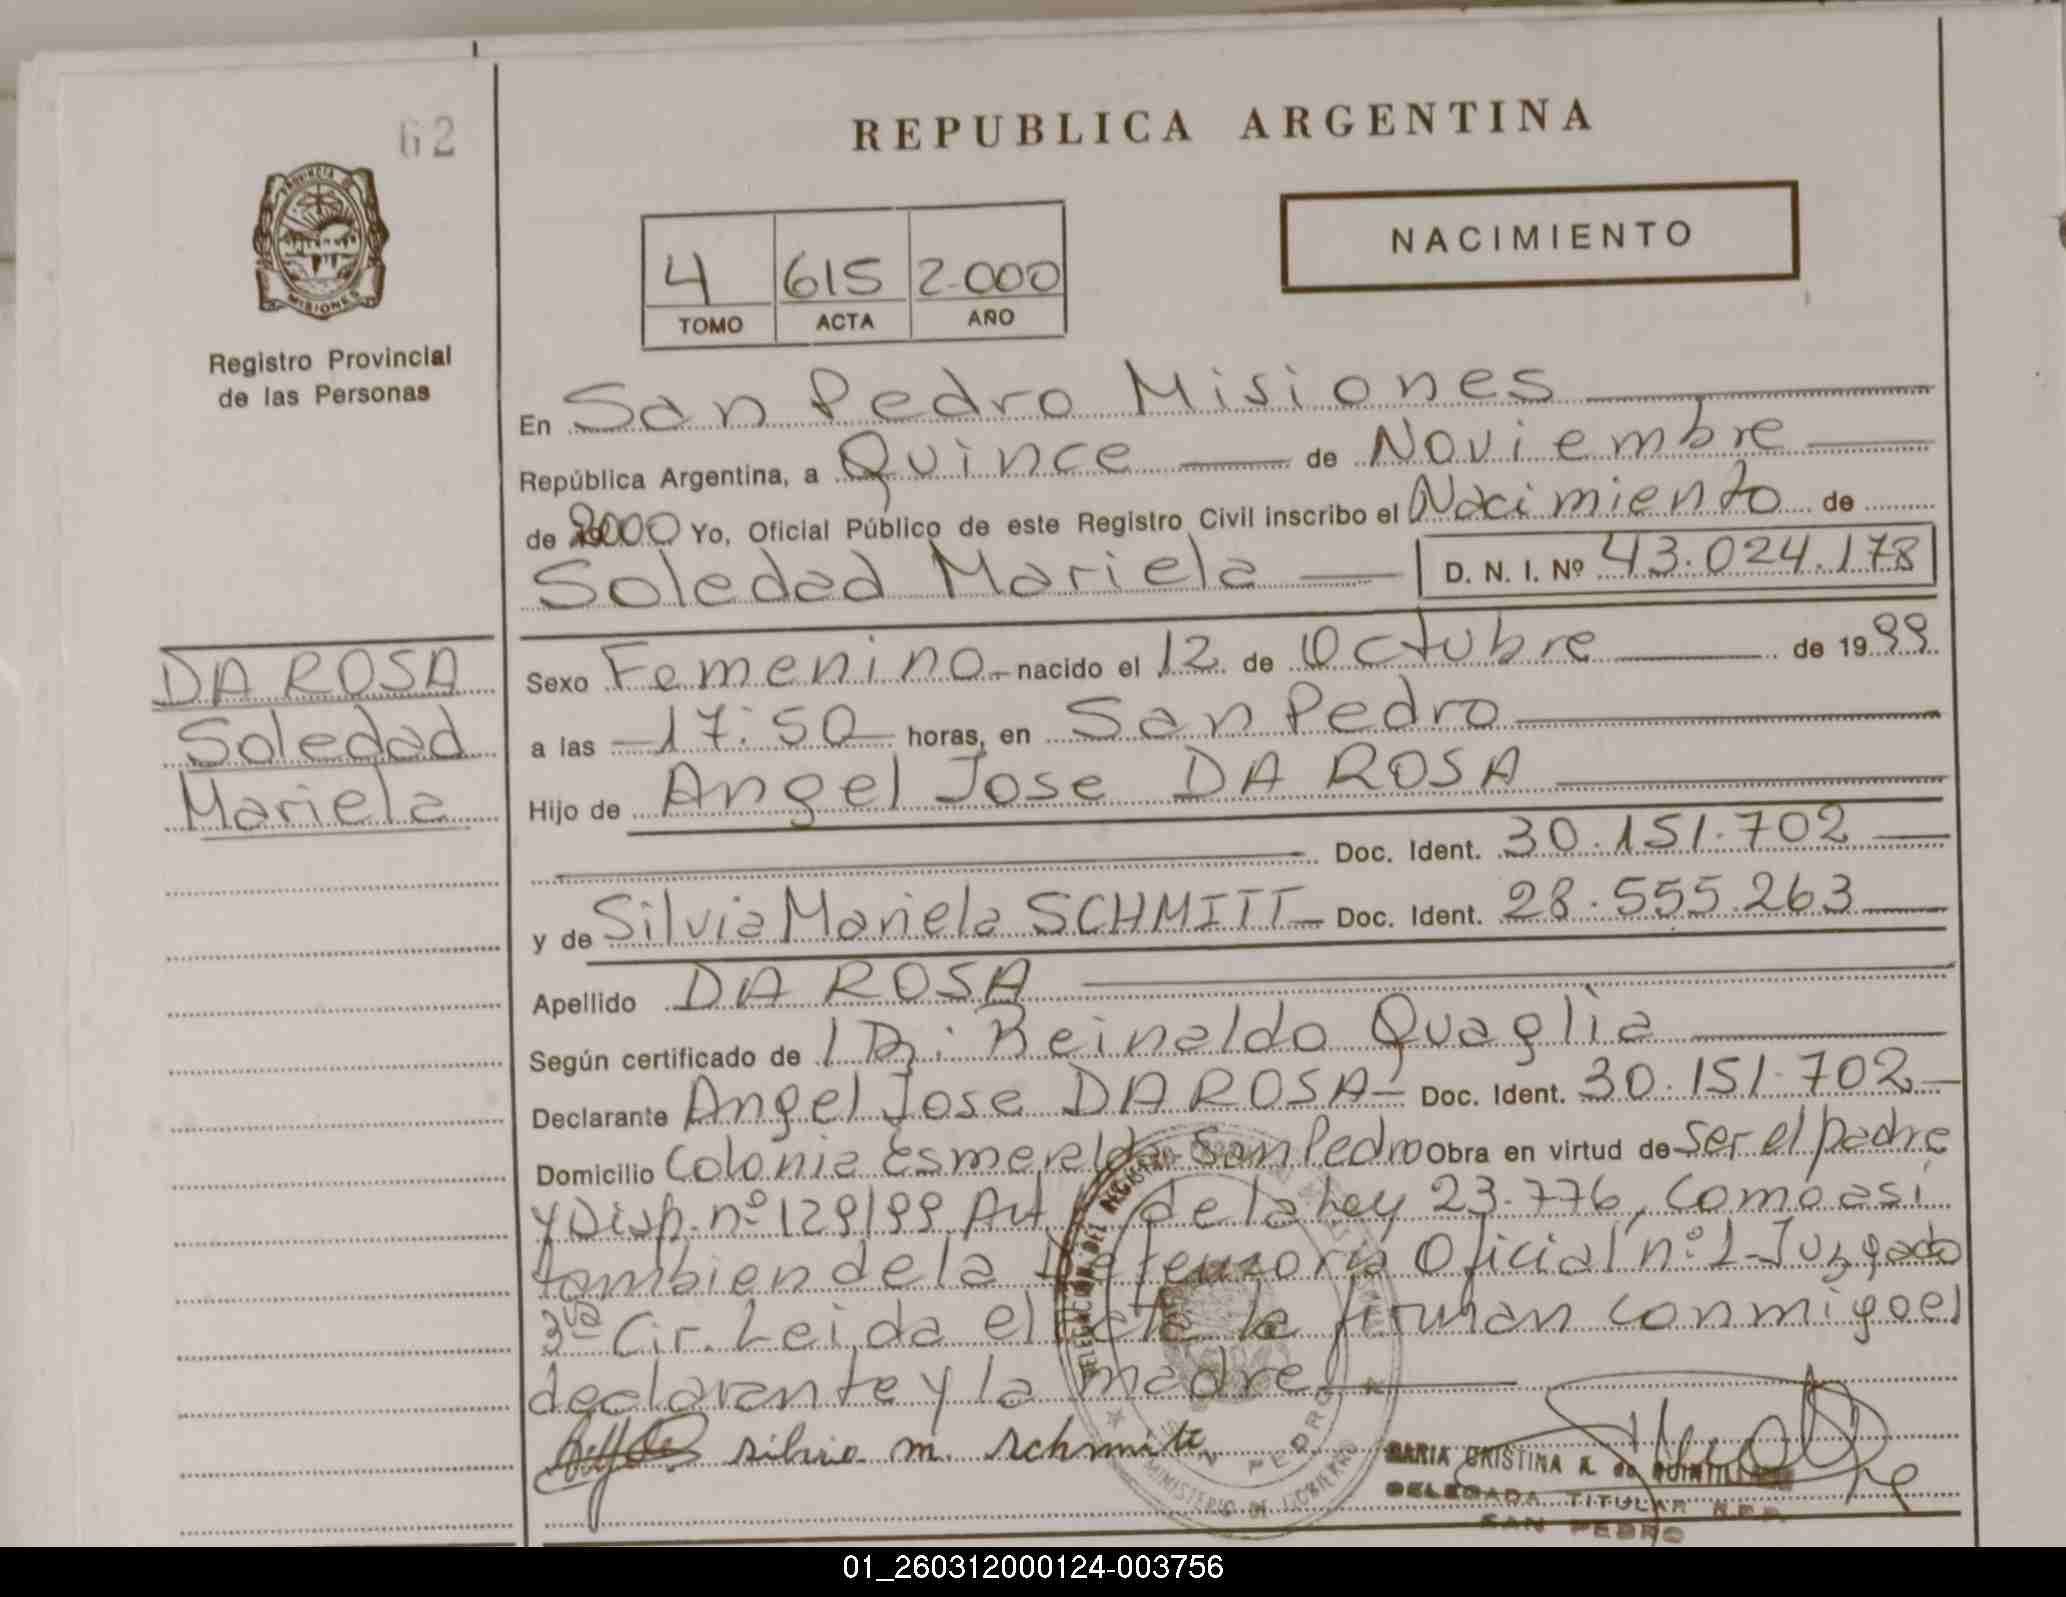 62
REPUBLICA ARGENTINA
NACIMIENTO
4 615 2.000
TOMO ACTA AÑO
PROVINCIA DE
MISIONES
Registro Provincial
de las Personas
En San Pedro Misiones
República Argentina, a Quince de Noviembre
de 2000 Yo, Oficial Público de este Registro Civil inscribo el Nacimiento de
Soledad Mariela D. N. I. Nº 43.024.178
DA ROSA
Soledad
Mariela
Sexo Femenino nacido el 12 de Octubre de 1999
a las 17:50 horas, en San Pedro
Hijo de Angel Jose DA ROSA
Doc. Ident. 30.151.702
y de Silvia Mariela SCHMITT Doc. Ident. 28.555.263
Apellido DA ROSA
Según certificado de Dr. Reinaldo Quaglia
Declarante Angel Jose DA ROSA Doc. Ident. 30.151.702
Domicilio Colonia Esmeralda San Pedro Obra en virtud de ser el padre
y Disp. nº 129/99 Art. de la Ley 23.776, como asi
tambien de la Defensoria Oficial nº 1 Juzgado
3ra Cir. Leida el acta la firman conmigo el
declarante y la madre
silvia m. schmitt
DELEGACION DEL REGISTRO
PEDRO
MINISTERIO DE GOBIERNO
MARIA CRISTINA A. de
DELEGADA TITULAR R.P.P.
SAN PEDRO
01_260312000124-003756